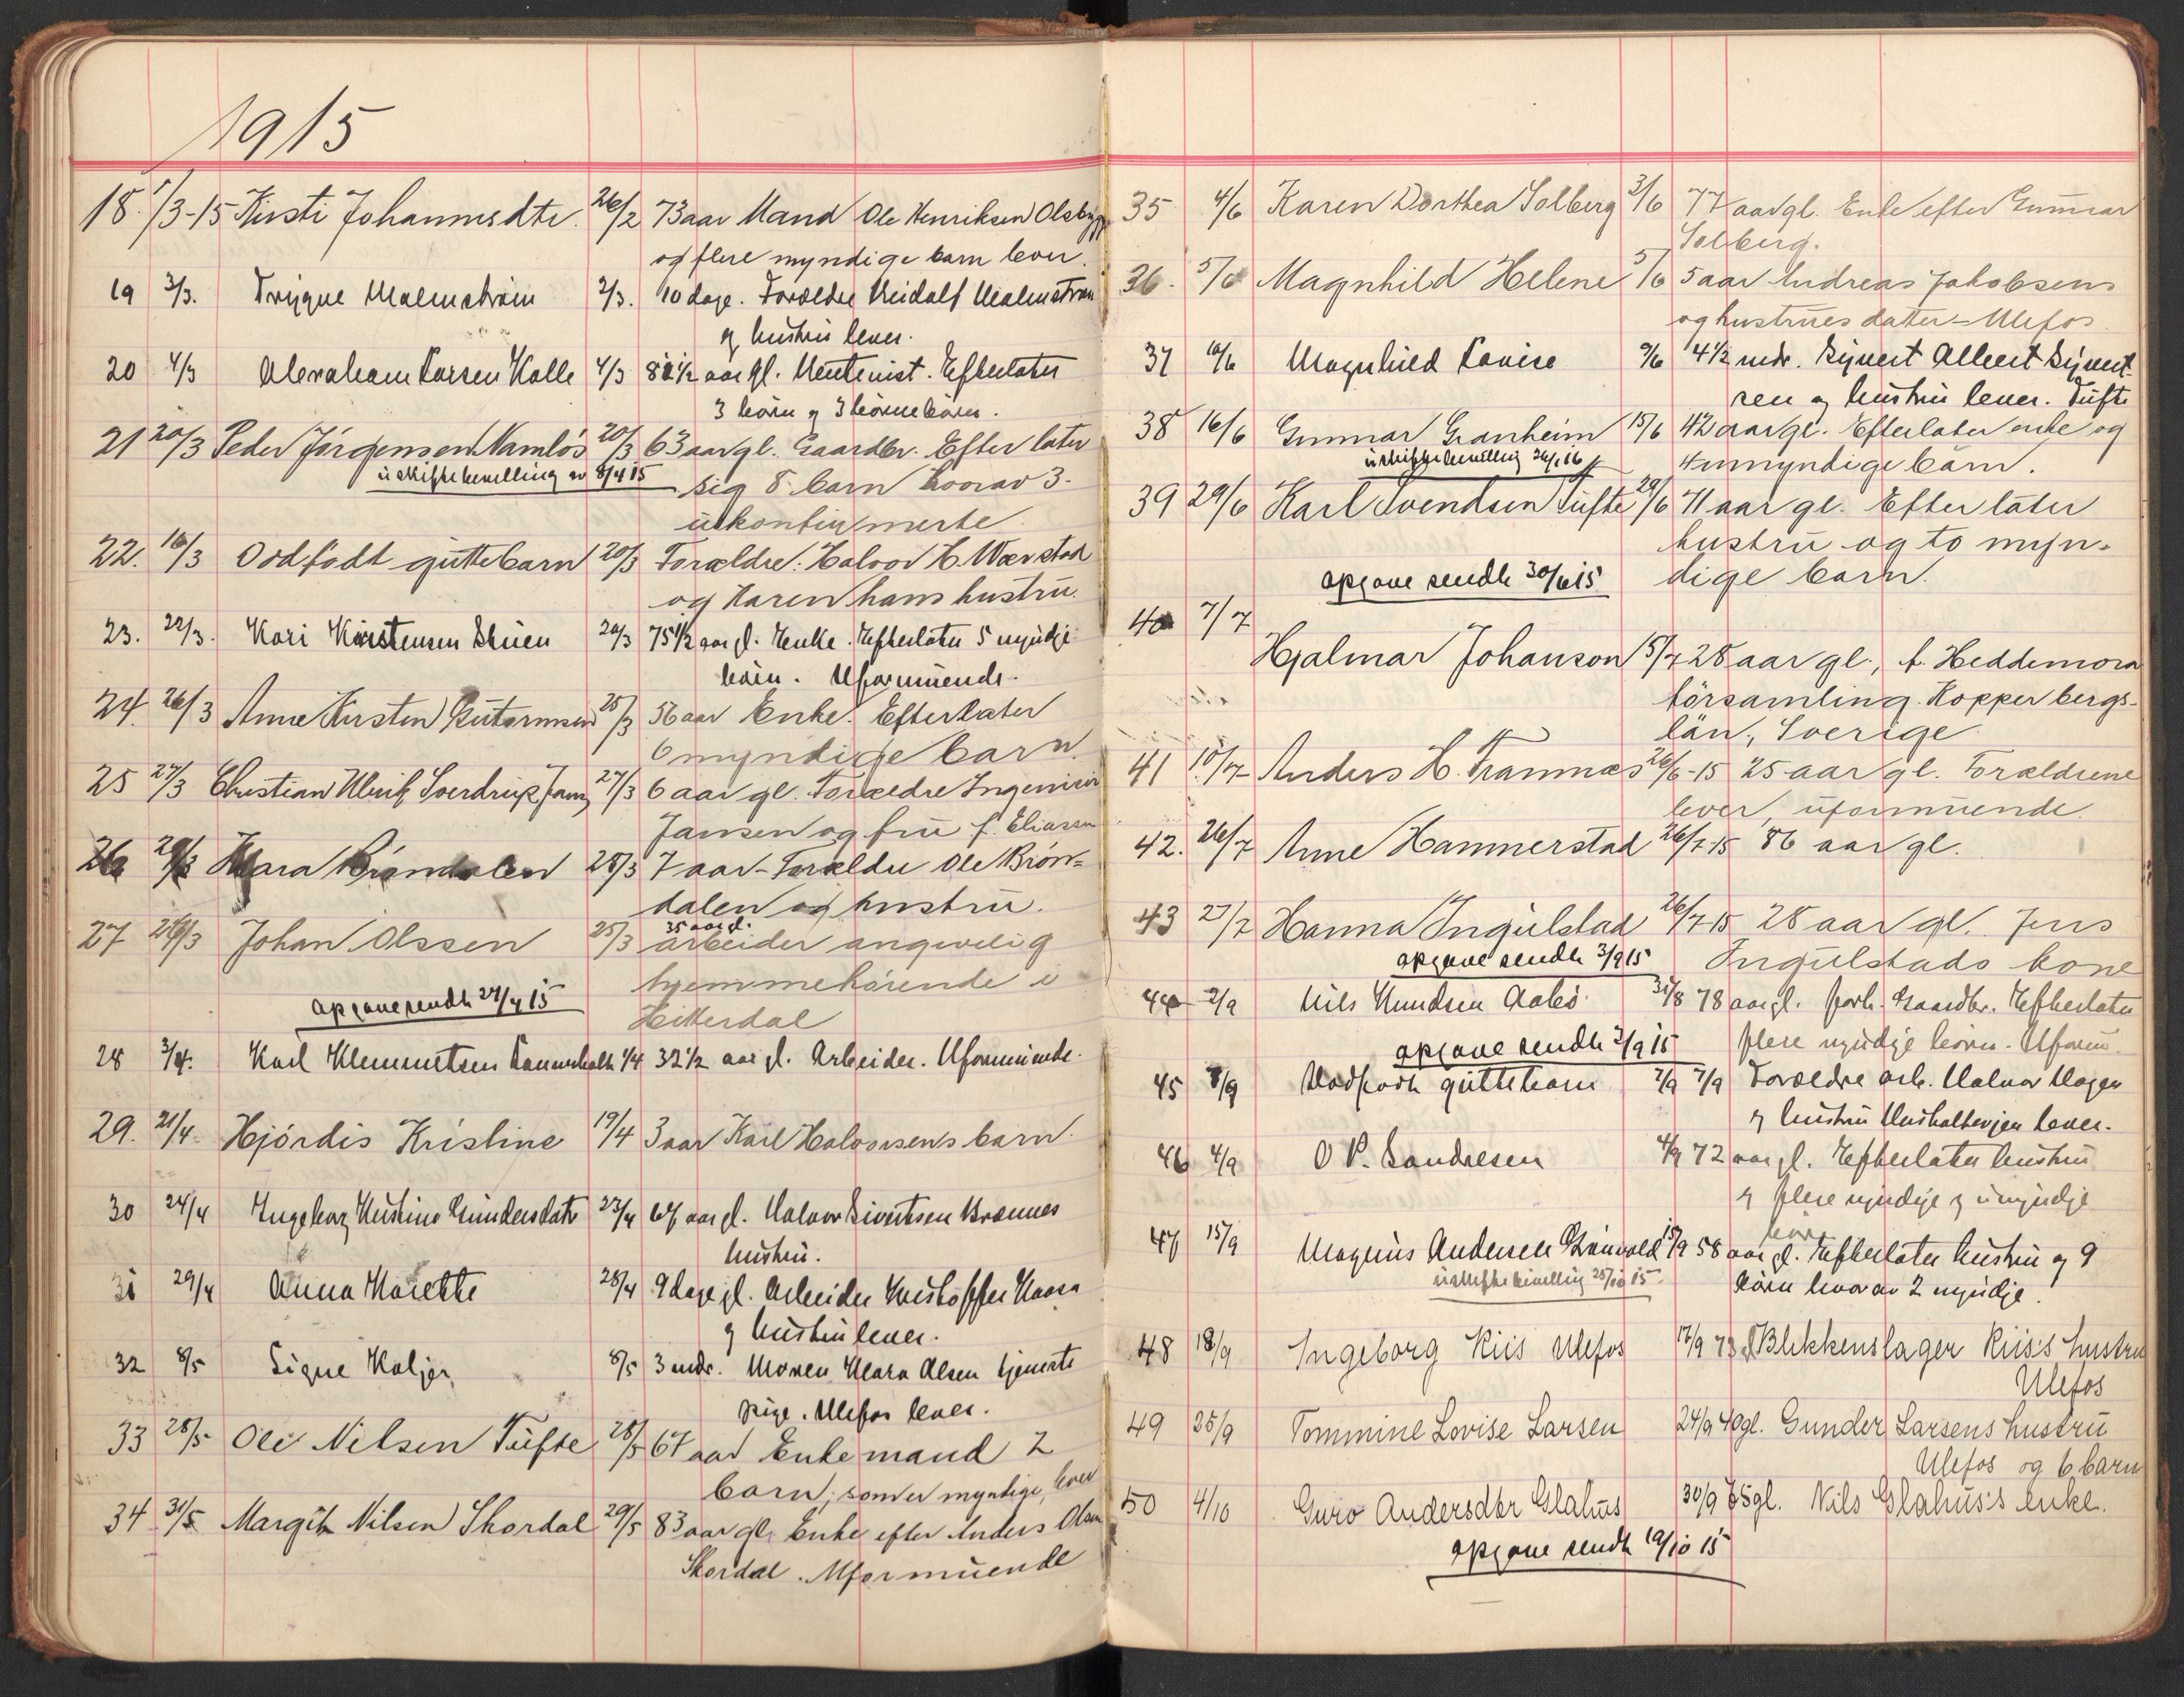 1915
18. 1/3-15 Kirsti Johannesdtr. 26/2 73 aar Mand Ole Henriksen Olsbrygge
og flere myndige barn lever.
19 3/3. Trygve Malmström 2/3. 10 dage. Forældre Meidalf Malmström
og hustru lever.
20 4/3 Abraham Larsen Kolle 4/3 81½ aar gl. Efterlater
3 börn og 3 börnebörn.
21 20/3 Peder Jörgensen Namlös 20/3 63 aar gl. Gaardbr. Efterlater
uskiftebevilling av 8/4 15 sig 8 barn hvorav 3
ukonfirmerte.
22. 16/3 Dödfödt guttebarn 20/3 Forældre: Halvor H. Værstad
og Karen hans hustru.
23. 22/3. Kari Kirstensen Stuen 20/3 75½ aar gl. Enke. Efterlater 5 myndige
börn. Uformuende.
24. 26/3 Anne Kirsten Gutormsen 25/3 56 aar Enke. Efterlater
6 myndige barn.
25 27/3 Christian Ulrik Sverdrup Jansen 27/3 6 aar gl. Forældre Ingeniör
Jansen og fru f. Eliassen
26 29/3 Klara Bröndalen 28/3 7 aar - Forældre Ole Brön-
dalen og hustru.
35 aar gl.
27 26/3 Johan Olssen 25/3 arbeider angivelig
hjemmehörende i
opgave sendt 27/4 15 Hitterdal
28 3/4. Karl Klemmetsen 1/4 32½ aar gl. Arbeider. Uformuende.
29. 21/4. Hjördis Kristine 19/4 3 aar Karl Halvorsens barn.
30 24/4 Ingeborg Kristine Gundersdatr 23/4 67 aar gl. Halvor Sivertsen Brænnes
hustru.
31 29/4 Anna Marette 28/4 9 dage gl. Arbeider Kristoffer Kaasa
og hustru lever.
32 8/5 Signe Kaljer 8/5 3 mdr. Moren Klara Olsen tjeneste
pige. Ulefos lever.
33 28/5 Ole Nilsen Tufte 28/5 67 aar Enkemand 2
barn, som er myndige, lever
34 31/5 Margit Nilsen Skordal 29/5 83 aar gl. Enke efter Anders Olsen
Skordal. Uformuende
35 4/6 Karen Dorthea Solberg 3/6 77 aar gl. Enke efter Gunnar
Solberg.
36. 5/6 Magnhild Helene 5/6 5 aar Andreas Jakobsens
og hustrues datter - Ulefos
37 10/6 Magnhild Lovise 9/6 4½ mdr. Sigvert Albert Sigvert-
sen og hustru lever. Tufte
38 16/6 Gunnar Granheim 15/6 42 aar gl. Efterlater enke og
uskiftebevilling 26/1 16 4 umyndige barn.
39 29/6 Karl Svendsen Tufte 29/6 71 aar gl. Efterlater
hustru og to myn-
opgave sendt 30/6 15 dige barn.
40 7/7
Hjalmar Johanson 5/7 28 aar gl., f. Heddemora
församling. Kopperbergs-
län, Sverige
41 10/7 Anders H. Framnæs 26/6-15 25 aar gl. Forældrene
lever, uformuende.
42. 26/7 Anne Hammerstad 26/7-15 86 aar gl.
43 27/7 Hanna Ingulstad 26/7-15 28 aar gl. Jens
opgave sendt 3/9 15 Ingulstads kone
44 2/9 Nils Knudsen Aabö. 31/8 78 aar gl. forh. Gaardbr. Efterlater
opgave sendt 3/9 15 flere myndige börn. Uformu.
45 8/9 Dödfödt guttebarn 7/9 7/9 Forældre arb. Halvor Hagen
og hustru lever.
46 4/9 O P. Sandresen 4/9 72 aar gl. Efterlater hustru
og flere myndige og umyndige
börn
47 15/9 Magnus Andersen Grönvold 15/9 58 aar gl. Efterlater hustru og 9
uskiftebevilling 25/10 15. börn hvorav 2 myndige.
48 18/9 Ingeborg Riis Ulefos 17/9 73 Blikkenslager Riis's hustru
Ulefos
49 25/9 Tommine Lovise Larsen 24/9 40 gl. Gunder Larsens hustru
Ulefos og 6 barn
50 4/10 Guro Andersdtr Glahus 30/9 75 gl. Nils Glahus's enke.
opgave sendt 19/10 15